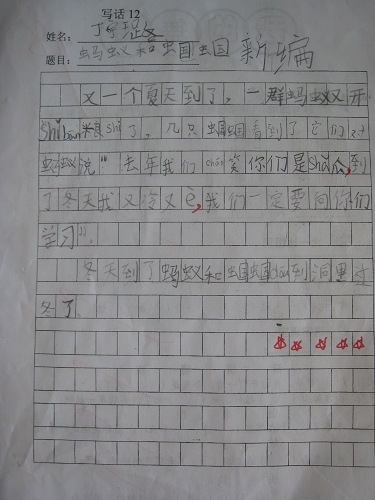 写话 12
姓名：丁
题目：蚂蚁和蝈蝈 新编
又一个夏天到了，一群蚂蚁又开
shǐ bān 粮 shi 了，几只蝈蝈看到了它们对
蚂蚁说“去年我们 cháo 笑你们是 shǎ 瓜,到
了冬天我又冷又è,我们一定要向你们
学习”。
冬天到了蚂蚁和蝈蝈 duǒ 到洞里过
冬了。